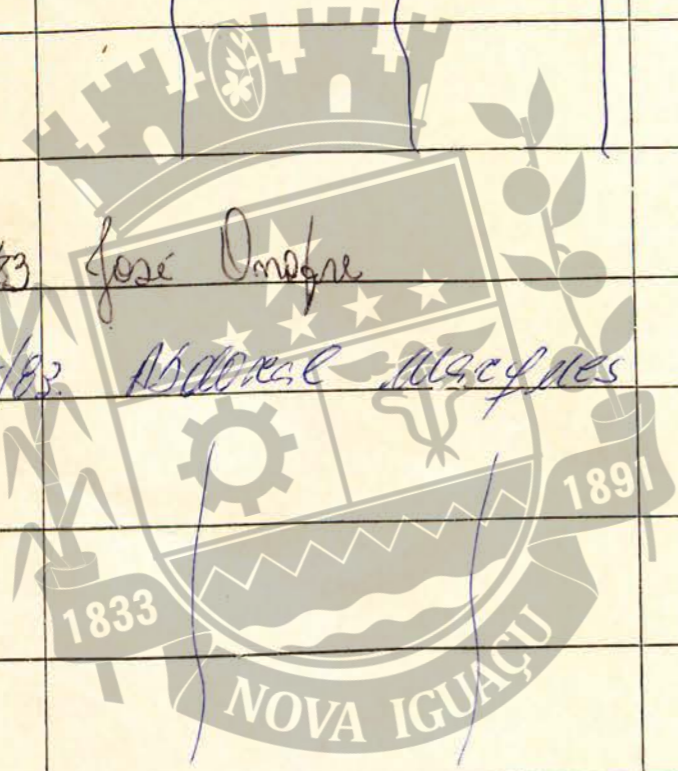 José Onofre
/83. Abdoral Marques
1891
1833
NOVA IGUAÇU